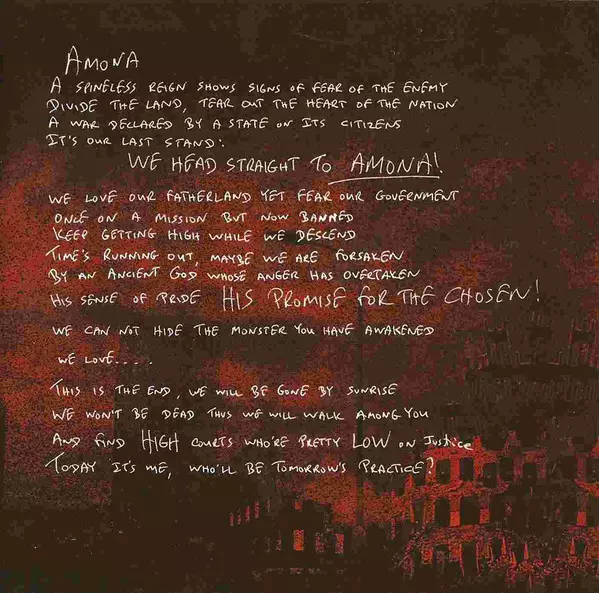 AMONA
A SPINELESS REIGN SHOWS SIGNS OF FEAR OF THE ENEMY
DIVIDE THE LAND, TEAR OUT THE HEART OF THE NATION
A WAR DECLARED BY A STATE ON ITS CITIZENS
IT'S OUR LAST STAND:
WE HEAD STRAIGHT TO AMONA!
WE LOVE OUR FATHERLAND YET FEAR OUR GOVERNMENT
ONCE ON A MISSION BUT NOW BANNED
KEEP GETTING HIGH WHILE WE DESCEND
TIME'S RUNNING OUT, MAYBE WE ARE FORSAKEN
BY AN ANCIENT GOD WHOSE ANGER HAS OVERTAKEN
HIS SENSE OF PRIDE HIS PROMISE FOR THE CHOSEN!
WE CAN NOT HIDE THE MONSTER YOU HAVE AWAKENED
WE LOVE....
THIS IS THE END, WE WILL BE GONE BY SUNRISE
WE WON'T BE DEAD THUS WE WILL WALK AMONG YOU
AND FIND HIGH COURTS WHO'RE PRETTY LOW ON JUSTICE
TODAY IT'S ME, WHO'LL BE TOMORROW'S PRACTICE?